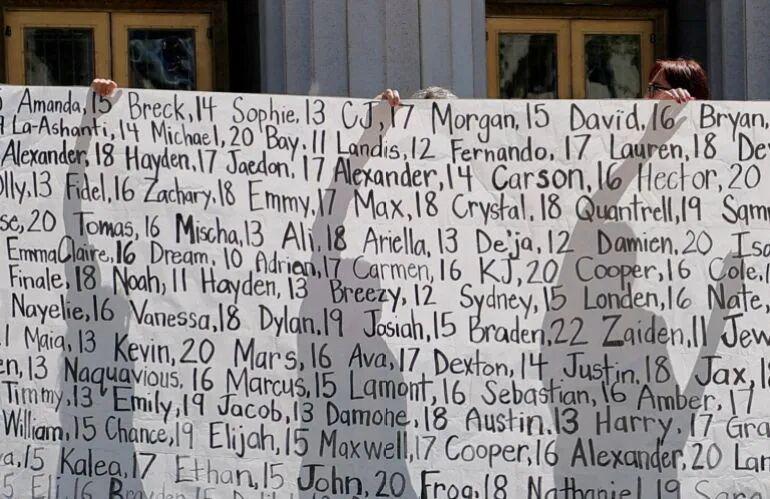 Amanda, 15 Breck, 14 Sophie, 13 CJ, 17 Morgan, 15 David, 16 Bryan,
La-Ashanti, 14 Michael, 20 Bay, 11 Landis, 12 Fernando, 17 Lauren, 18 De
Alexander, 18 Hayden, 17 Jaedon, 17 Alexander, 14 Carson, 16 Hector, 20
olly, 13 Fidel, 16 Zachary, 18 Emmy, 17 Max, 18 Crystal, 18 Quantrell, 19 Sam
se, 20 Tomas, 16 Mischa, 13 Ali, 18 Ariella, 13 De'ja, 12 Damien, 20 Isa
EmmaClaire, 16 Dream, 10 Adrien, 17 Carmen, 16 KJ, 20 Cooper, 16 Cole, 1
Finale, 18 Noah, 11 Hayden, 13 Breezy, 12 Sydney, 15 Londen, 16 Nate,
Nayelie, 16 Vanessa, 18 Dylan, 19 Josiah, 15 Braden, 22 Zaiden, 11 Jew
1 Maia, 13 Kevin, 20 Mars, 16 Ava, 17 Dexton, 14 Justin, 18 Jax, 1
en, 13 Naquavious, 16 Marcus, 15 Lamont, 16 Sebastian, 16 Amber, 17
Timmy, 13 Emily, 19 Jacob, 13 Damone, 18 Austin, 13 Harry, 17 Gra
William, 15 Chance, 19 Elijah, 15 Maxwell, 17 Cooper, 16 Alexander, 20 Lan
a, 15 Kalea, 17 Ethan, 15 John, 20 Frog, 18 Nathaniel, 19
5 Eli, 16 Brayden, 15